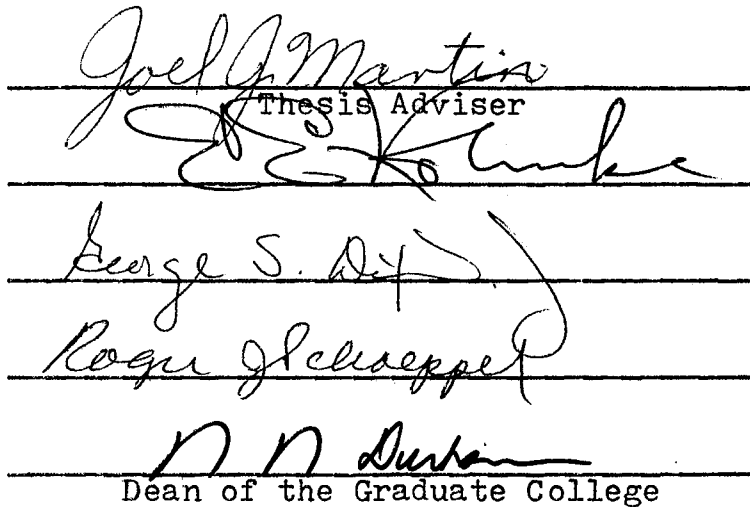 Joel J. Martin
Thesis Adviser
E E Kohnke
George S. Dixon
Roger J Schoeppel
N N Durham
Dean of the Graduate College